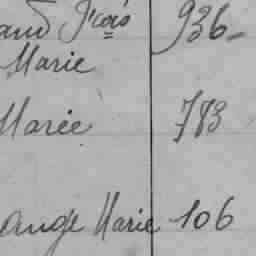 and Fcois 936-
Marie
Marie 783
ange Marie 106